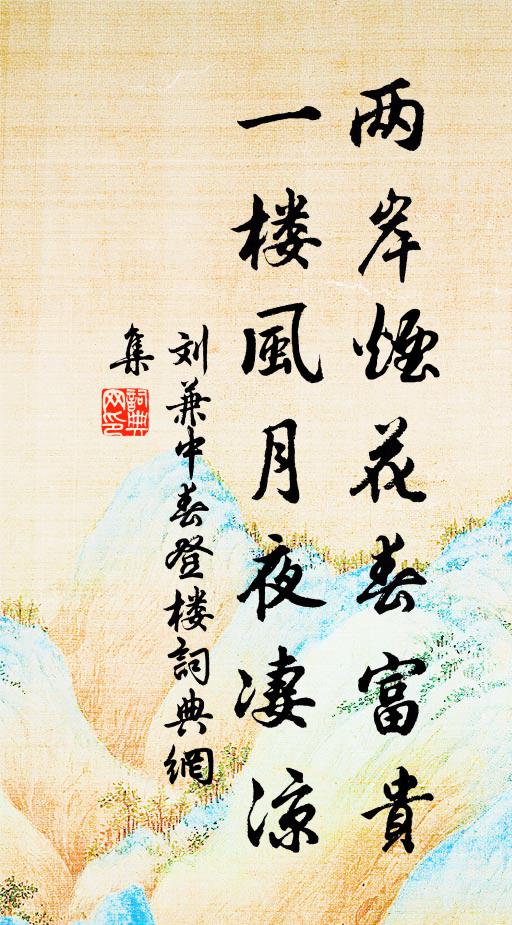 两岸煙花春富貴
一楼風月夜凄涼
刘兼中春登楼詞典網
集
詞典
网印